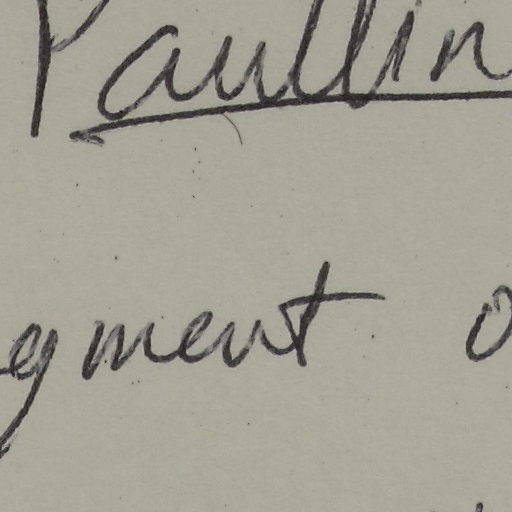 Paullin
egment o